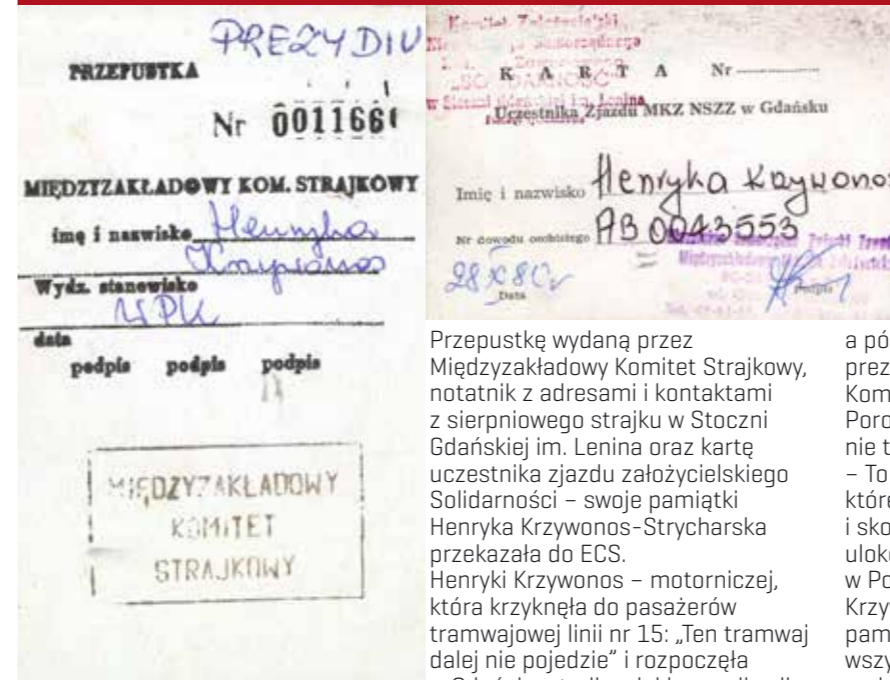 PREZYDIU
PRZEPUSTKA
Nr 001166
MIĘDZYZAKŁADOWY KOM. STRAJKOWY
imę i nazwisko Henryka
Krzywonos
Wydz. stanowisko
WPK
data
podpis podpis podpis
MIĘDZYZAKŁADOWY
KOMITET
STRAJKOWY
Komitet Założycielski
KARTA Nr
Uczestnika Zjazdu MKZ NSZZ w Gdańsku
Imię i nazwisko Henryka Krzywonos
Nr dowodu osobistego AB 0043553
Data
Podpis
Przepustkę wydaną przez
Międzyzakładowy Komitet Strajkowy,
notatnik z adresami i kontaktami
z sierpniowego strajku w Stoczni
Gdańskiej im. Lenina oraz kartę
uczestnika zjazdu założycielskiego
Solidarności – swoje pamiątki
Henryka Krzywonos-Strycharska
przekazała do ECS.
Henryki Krzywonos – motorniczej,
która krzyknęła do pasażerów
tramwajowej linii nr 15: „Ten tramwaj
dalej nie pojedzie” i rozpoczęła
a pó
prez
Kom
Poro
nie t
– To
które
i sko
uloko
w Po
Krzy
pam
wszy